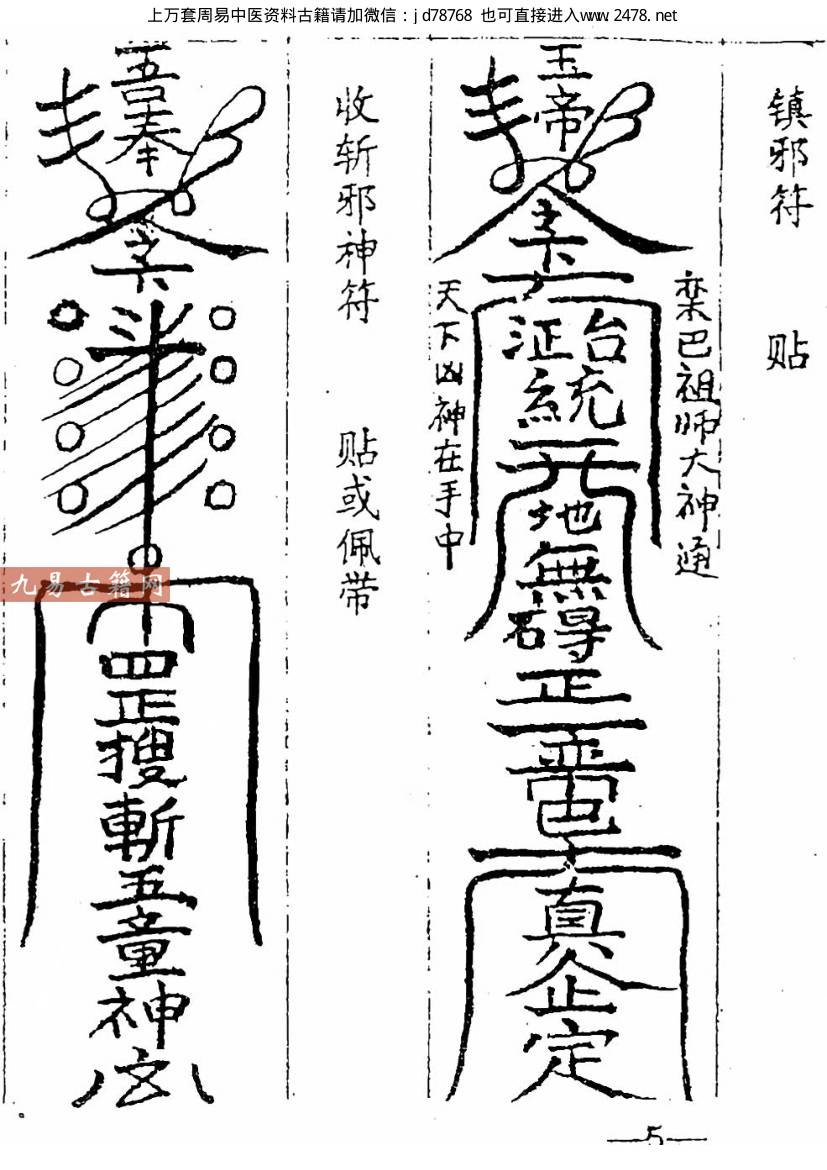 上万套周易中医资料古籍请加微信：jd78768 也可直接进入www.2478.net
镇邪符 贴
栾巴祖师大神通
玉帝
台
統
地
無碍
正
真
企定
天下凶神在手中
收斩邪神符 贴或佩带
吾奉
四正搜斬五童神
九易古籍网
5